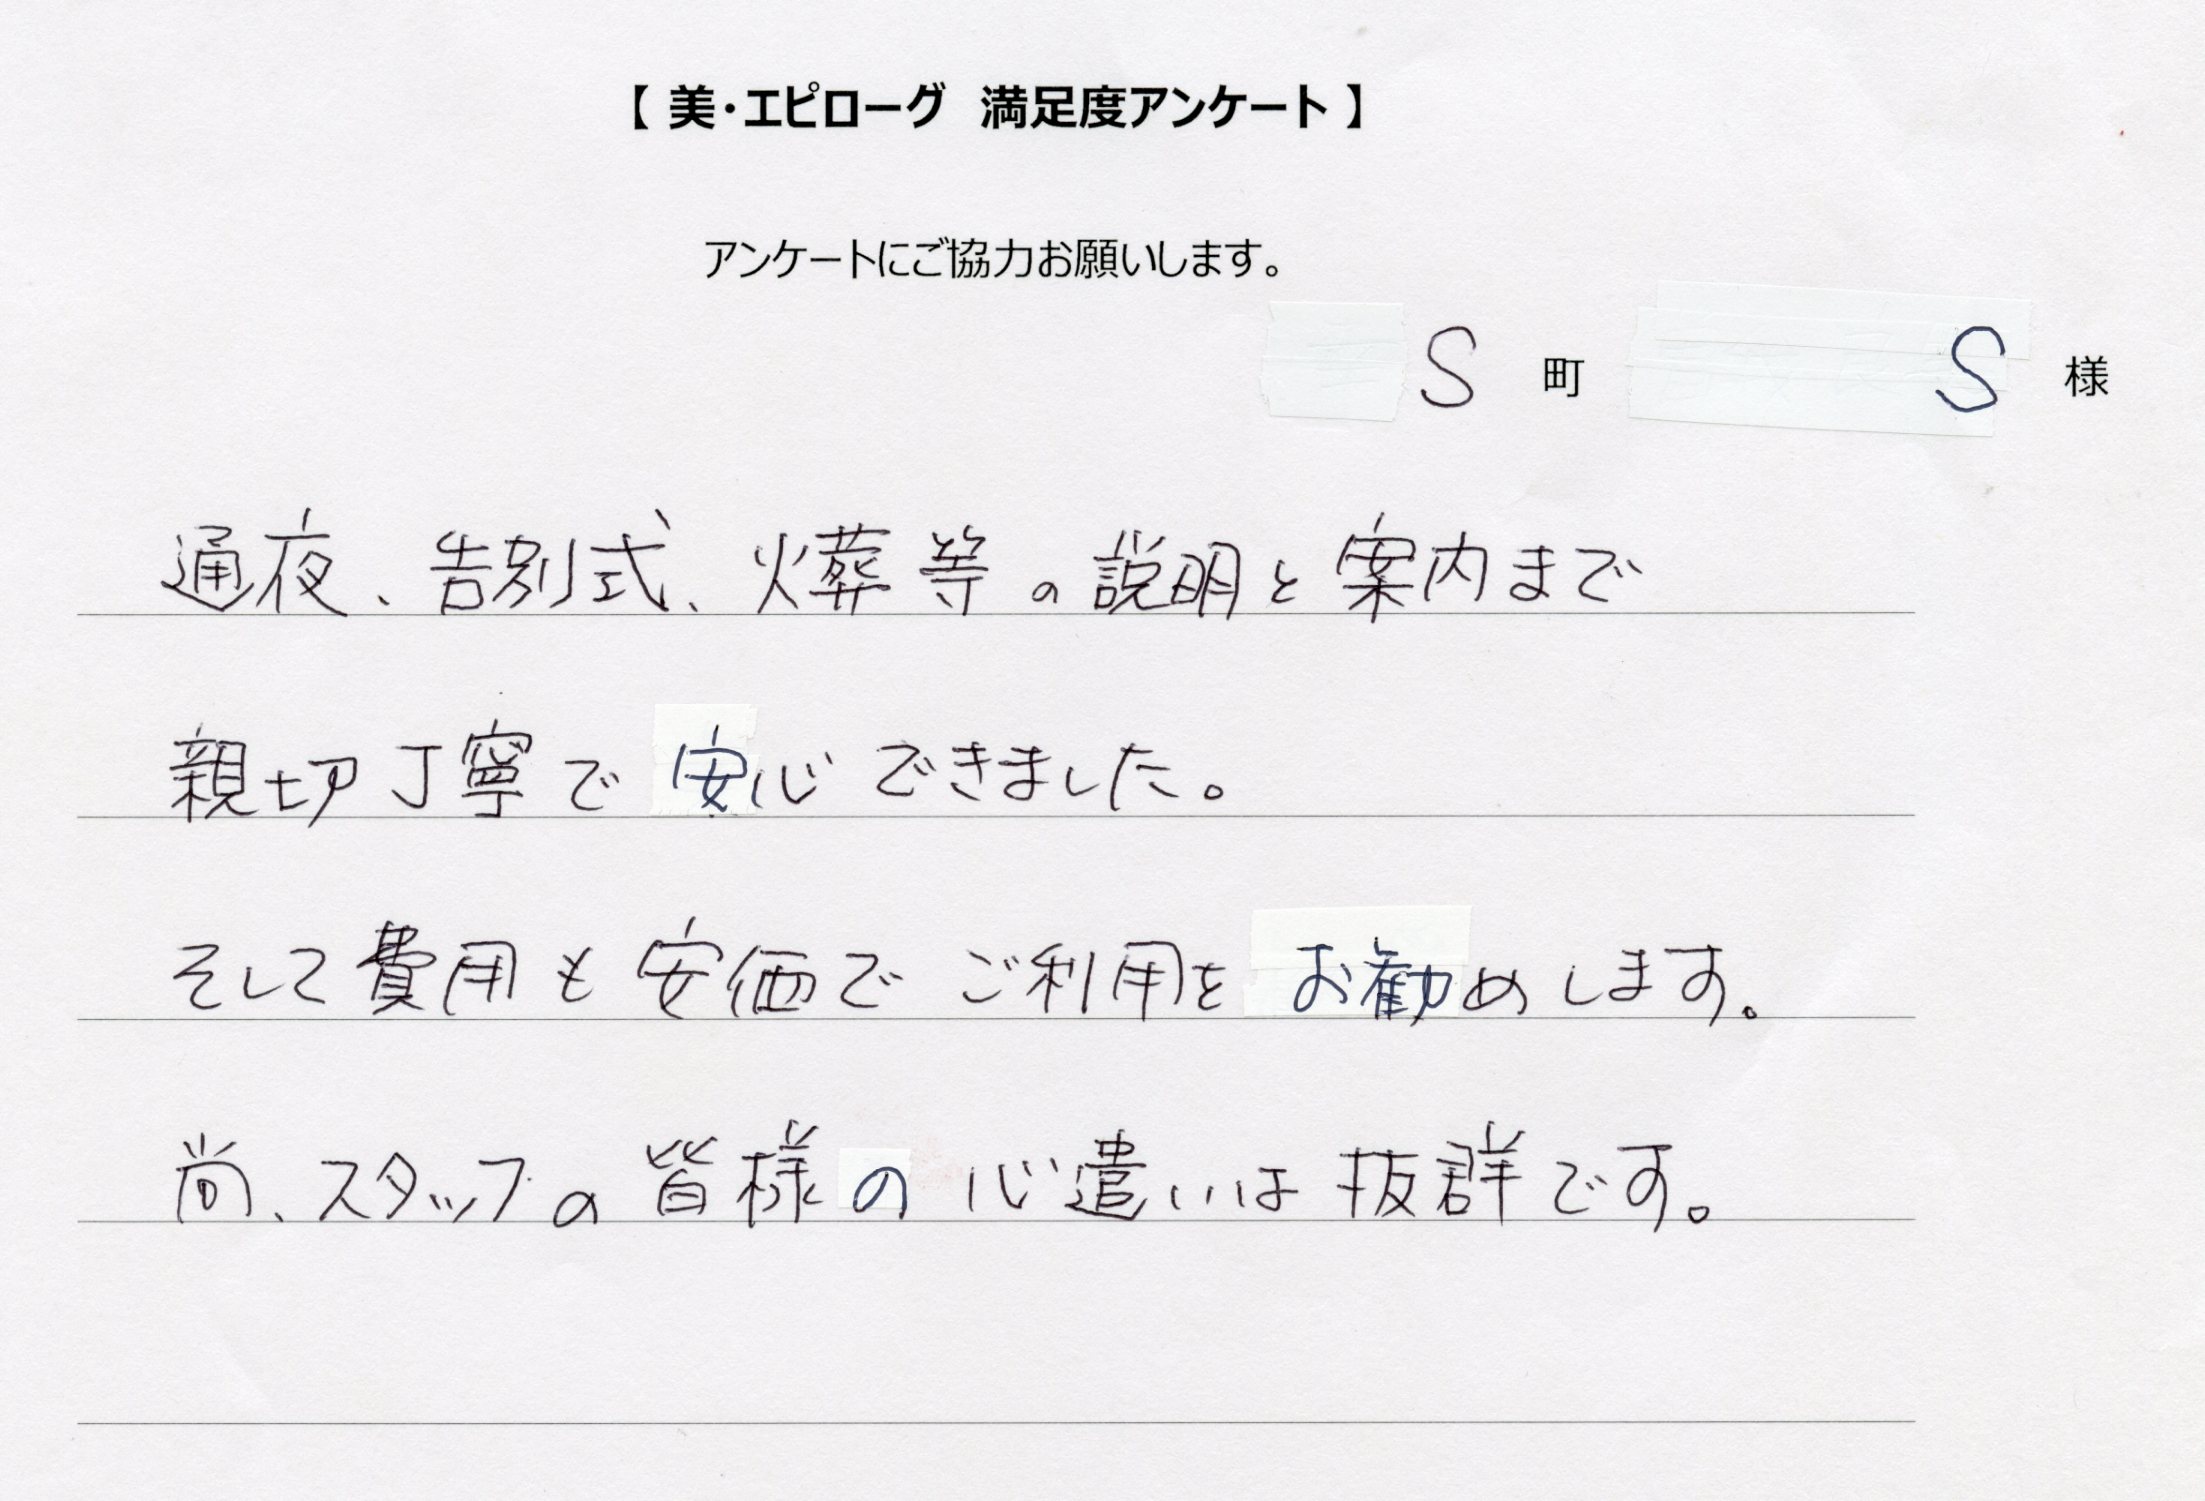 【 美・エピローグ　満足度アンケート 】
アンケートにご協力お願いします。
S 町 S 様
通夜、告別式、火葬等の説明と案内まで
親切丁寧で安心できました。
そして費用も安価でご利用をお勧めします。
尚、スタッフの皆様の心遣いは抜群です。